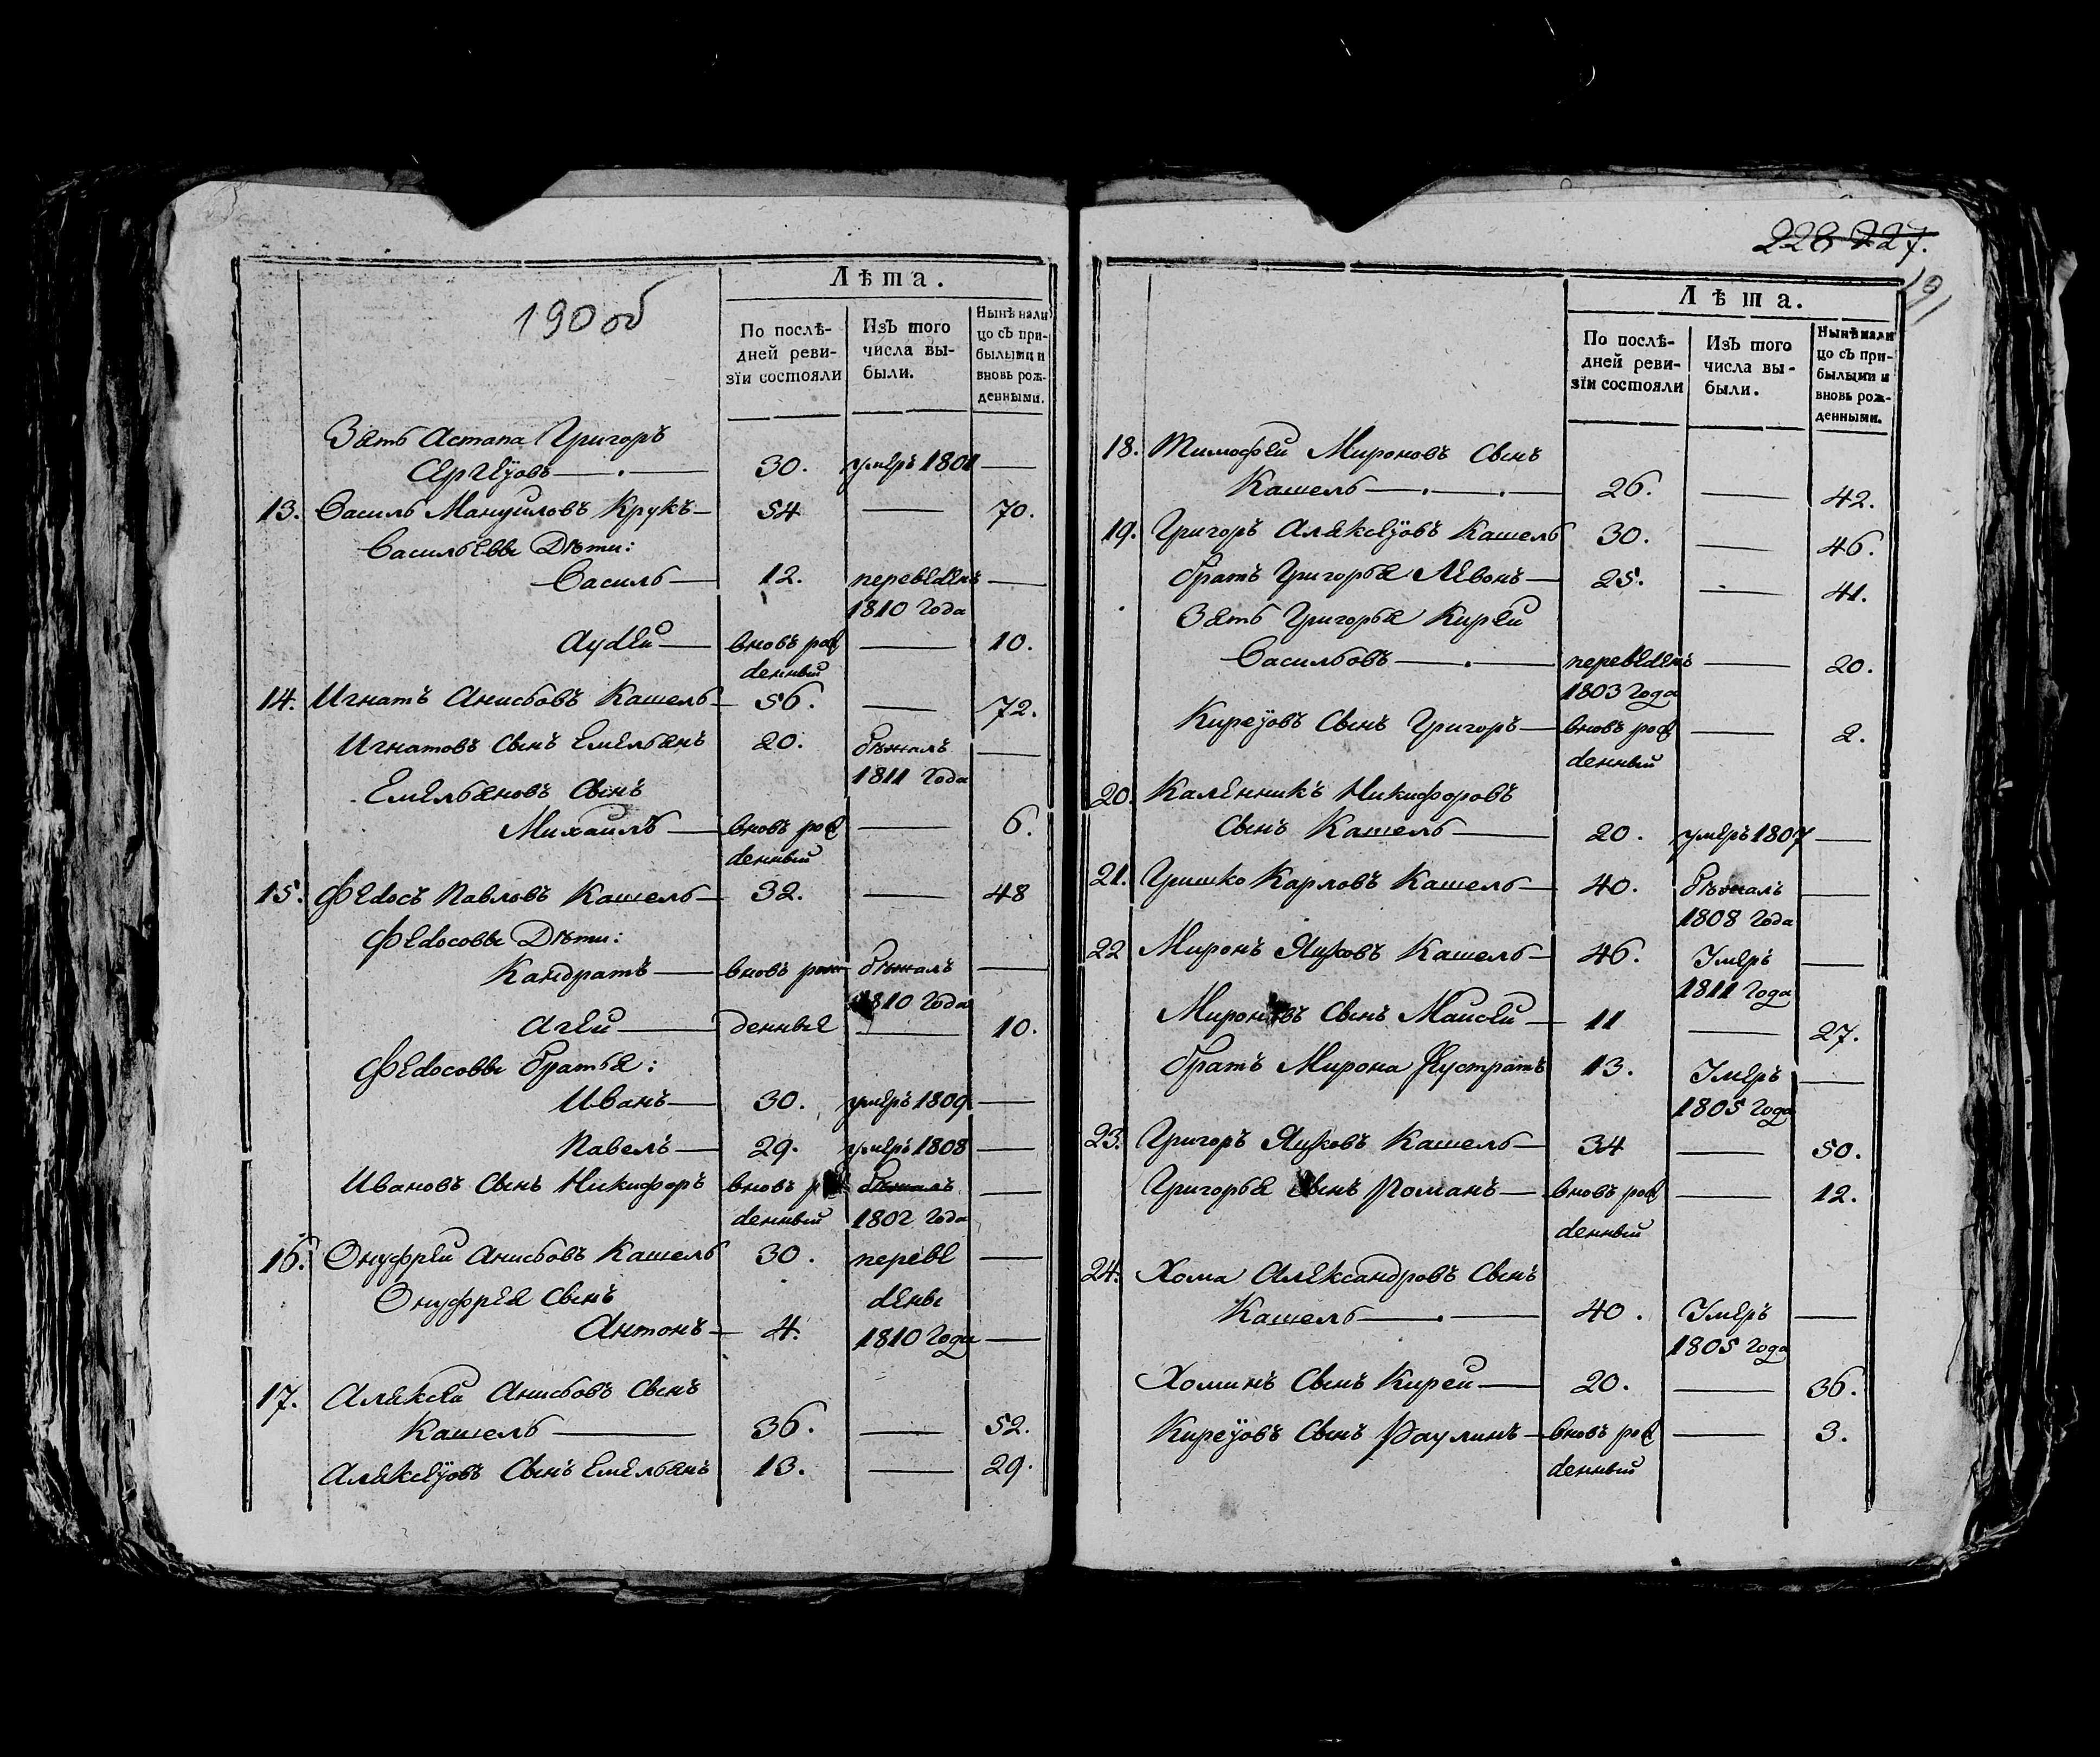 190 об
Лѣта.
По послѣ-
дней реви-
зїи состояли
Изъ того
числа вы-
были.
Нынѣ нали
цо съ при-
былыми и
вновь рож-
денными.
Зять Астапа Григоръ
Сергеўовъ — 30. умеръ 1801 —
13. Василь Мануиловъ Крукъ — 54 — 70.
Васильевы Дѣти:
Василь — 12. переведенъ —
1810 года
Аудей — вновь рож — 10.
денный
14. Игнатъ Анисьовъ Кашель — 56. — 72.
Игнатовъ Сынъ Емельянъ 20. бѣжалъ —
1811 года
Емельяновъ Сынъ
Михаилъ — вновь рож — 6.
денный
15. Федосъ Павловъ Кашель — 32. — 48
Федосовы Дѣти:
Кандратъ — вновь рож бѣжалъ —
1810 года
Агей — денные — 10.
Федосовы братья:
Иванъ — 30. умеръ 1809 —
Павелъ — 29. умеръ 1808 —
Ивановъ Сынъ Никифоръ вновь бѣжалъ —
денный 1802 года
16. Онуфрей Анисьовъ Кашель 30. переве —
Онуфрея Сынъ дены
Антонъ — 4. 1810 года —
17. Алексей Анисьовъ Сынъ
Кашель — 36. — 52.
Алексеўовъ Сынъ Емельянъ 13. — 29.
226 227.
191
Лѣта.
По послѣ-
дней реви-
зїи состояли
Изъ того
числа вы-
были.
Нынѣ нали
цо съ при-
былыми и
вновь рож-
денными.
18. Тимофей Мироновъ Сынъ
Кашель — 26. — 42.
19. Григоръ Алексеўовъ Кашель 30. — 46.
братъ Григорья Левонъ — 25. — 41.
Зять Григорья Кирей
Васильовъ — переведенъ — 20.
1803 года
Киреўовъ Сынъ Григоръ — вновь рож — 2.
денный
20. Каленникъ Никифоровъ
Сынъ Кашель — 20. умеръ 1807 —
21. Гришко Карповъ Кашель — 40. бѣжалъ —
1808 года
22 Миронъ Яцковъ Кашель — 46. Умеръ —
1811 года
Мироновъ Сынъ Маисей — 11 — 27.
братъ Мирона Яустратъ 13. Умеръ —
1805 года
23. Григоръ Яцковъ Кашель — 34 — 50.
Григорья Сынъ Романъ — вновь рож — 12.
денный
24. Хома Александровъ Сынъ
Кашель — 40. Умеръ —
1805 года
Хоминъ Сынъ Кирей — 20. — 36.
Киреўовъ Сынъ Раулинъ — вновь рож — 3.
денный